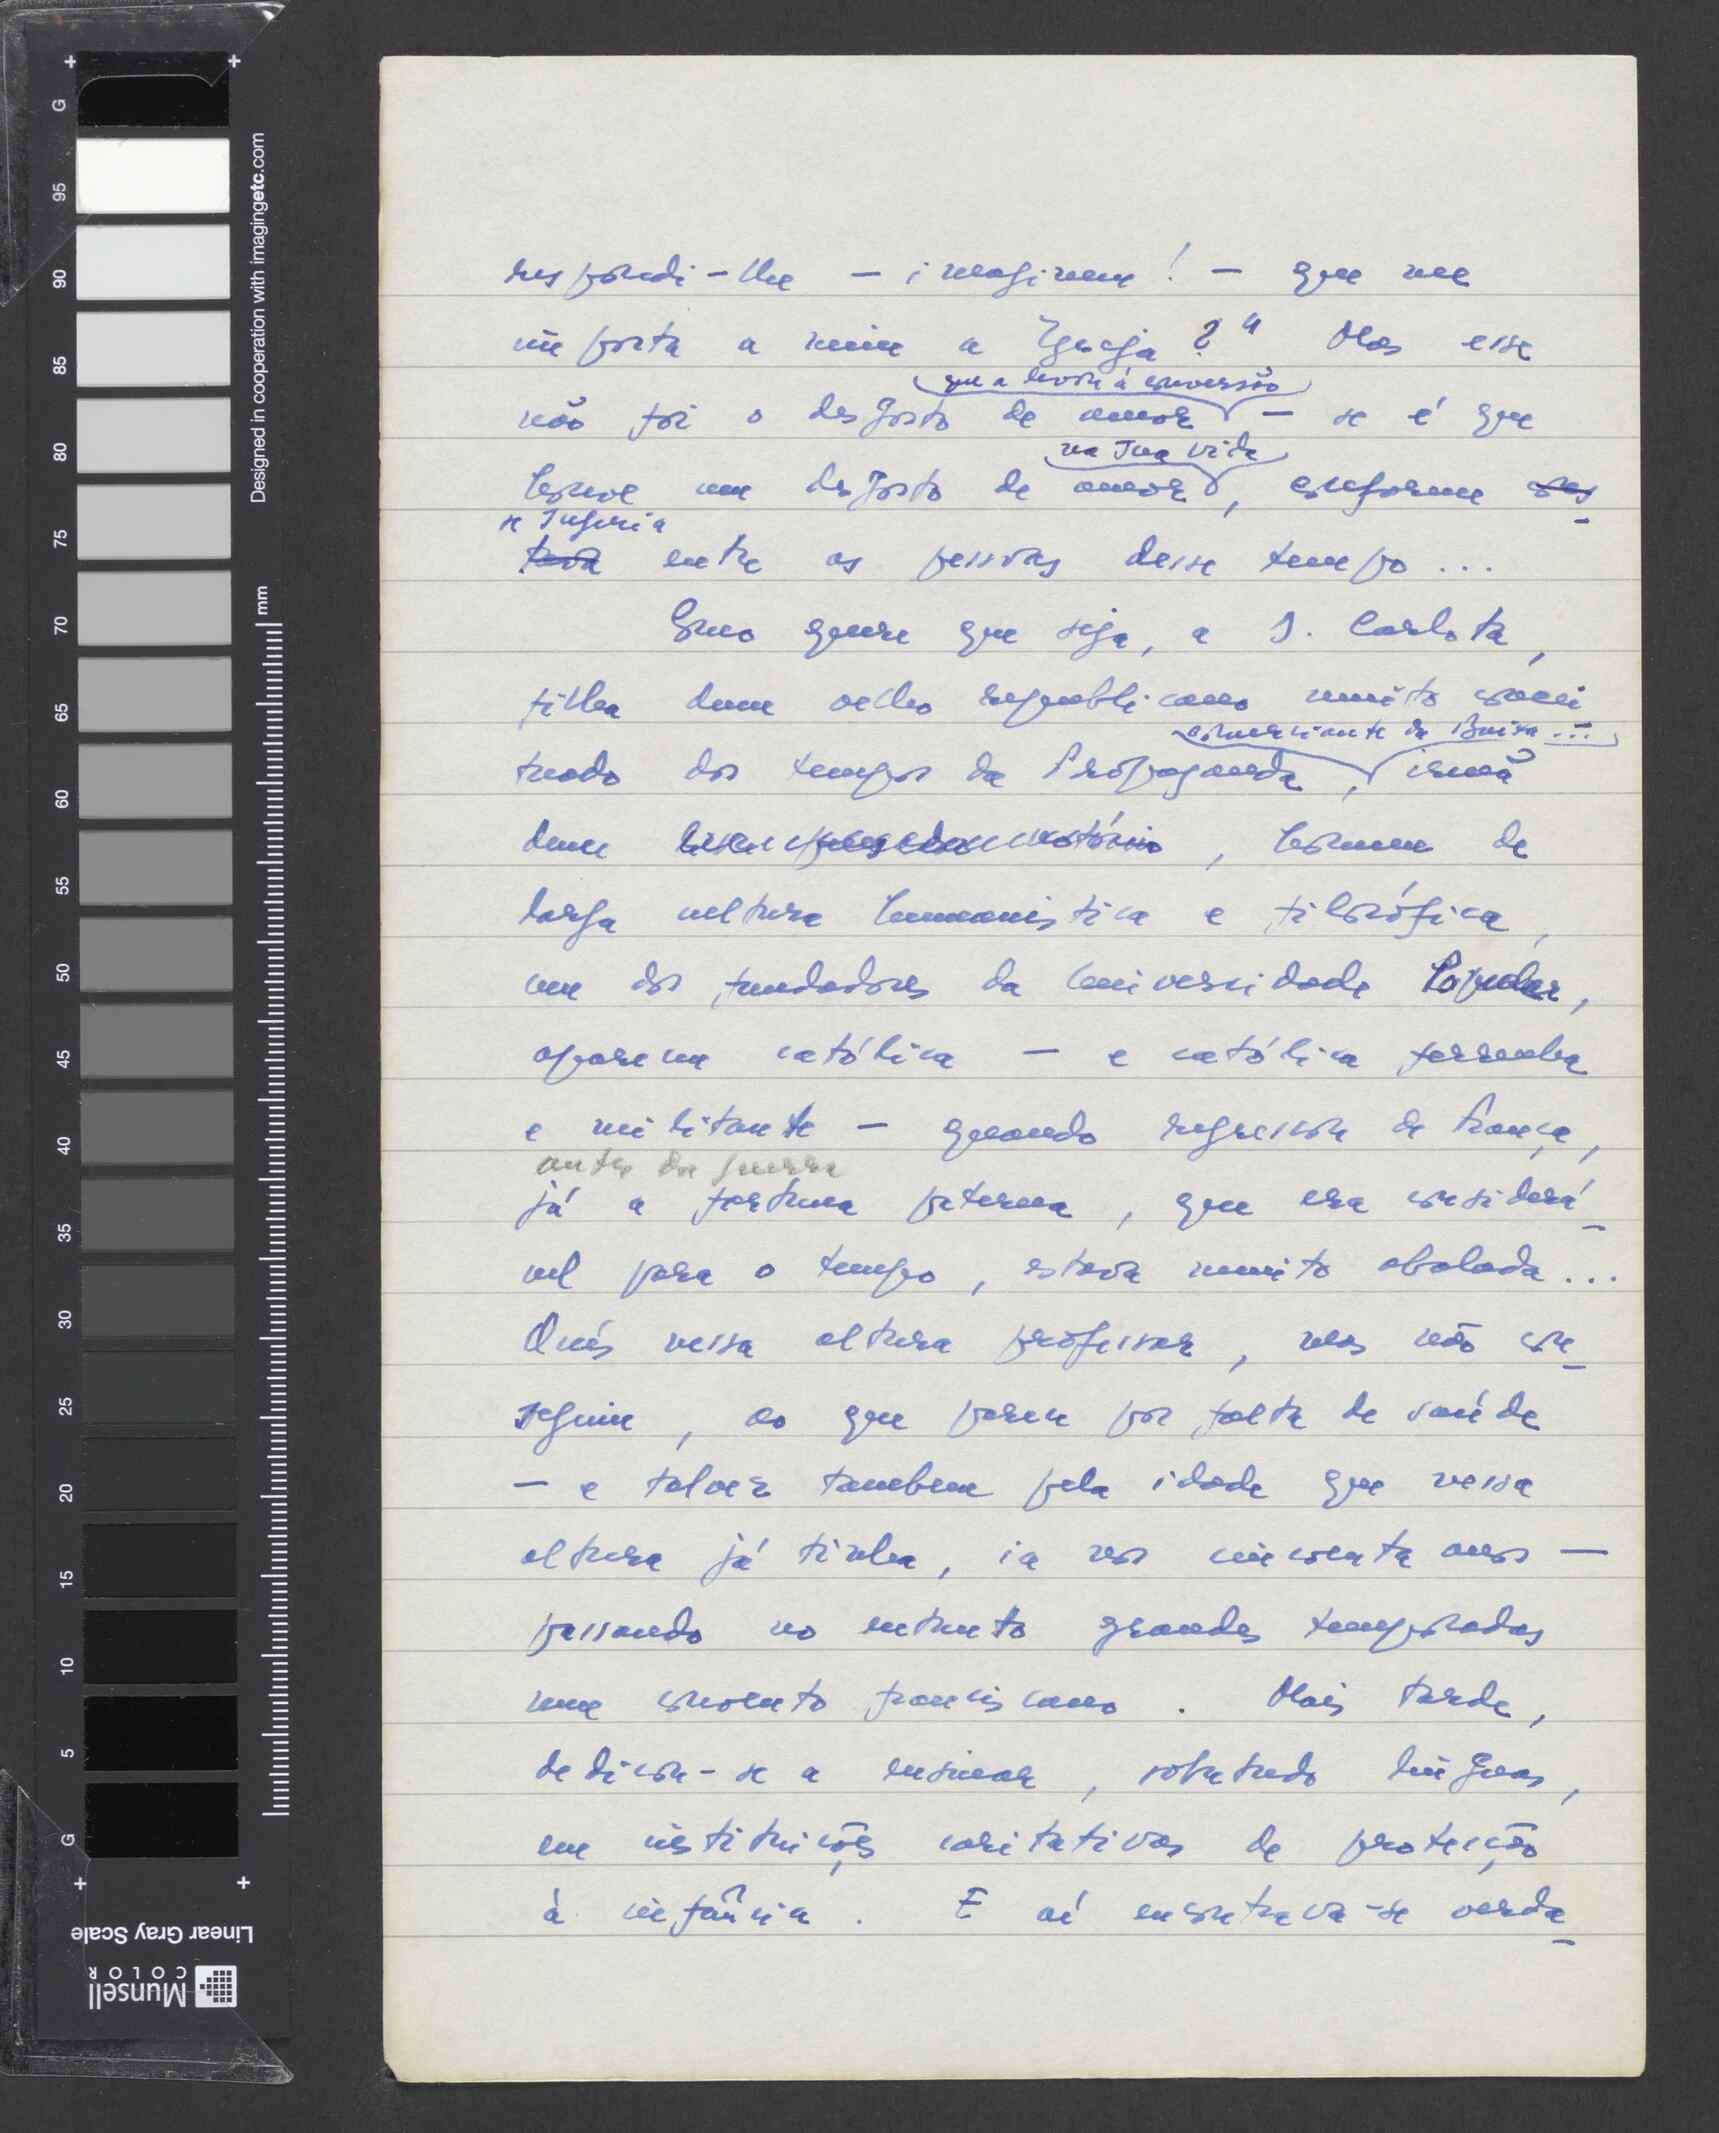 respondi-lhe — imaginem! — que me
importa a mim a Igreja?" Mas esse
que a levou à conversão
não foi o desgosto de amor — se é que
na sua vida
houve um desgosto de amor, conforme cons
se sugeria
tava entre as pessoas desse tempo...
Como quer que seja, a D. Carlota,
filha dum velho republicano muito concei
comerciante da Baixa...
tuado dos tempos da Propaganda, irmã
dum notório, homem de
larga cultura humanística e filosófica,
um dos fundadores da Universidade Popular,
apareceu católica — e católica ferrenha
e militante — quando regressou de França,
antes da guerra
já a fortuna paterna, que era considerá
vel para o tempo, estava muito abalada...
Quis nessa altura professar, mas não con
seguiu, ao que parece por falta de saúde
— e talvez tambem pela idade que nessa
altura já tinha, ia nos cincoenta anos —
passando no entanto grandes temporadas
num convento franciscano. Mais tarde,
dedicou-se a ensinar, sobretudo línguas,
em instituições caritativas de protecção
à infância. E aí encontrava-se verda
Designed in cooperation with imagingetc.com
mm
G 95 90 85 80 75 70 65 60 55 50 45 40 35 30 25 20 15 10 5 G
Linear Gray Scale
Munsell
COLOR